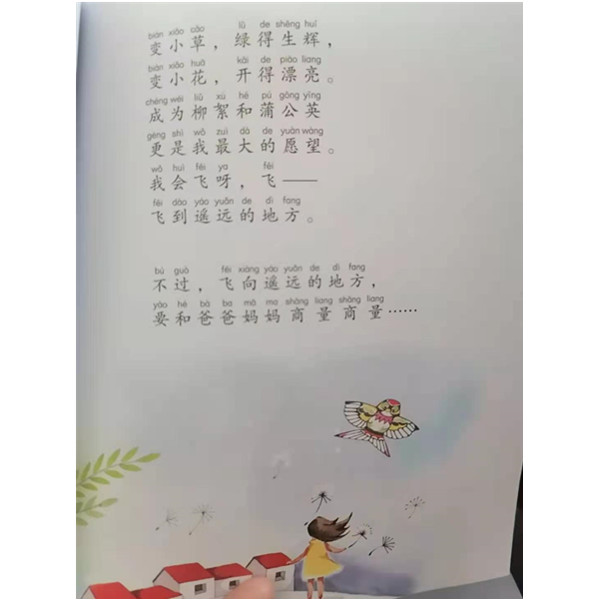 biàn xiǎo cǎo lǜ de shēng huī
变小草，绿得生辉，
biàn xiǎo huā kāi de piào liang
变小花，开得漂亮。
chéng wéi liǔ xù hé pú gōng yīng
成为柳絮和蒲公英
gèng shì wǒ zuì dà de yuàn wàng
更是我最大的愿望。
wǒ huì fēi ya fēi
我会飞呀，飞——
fēi dào yáo yuǎn de dì fang
飞到遥远的地方。
bú guò fēi xiàng yáo yuǎn de dì fang
不过，飞向遥远的地方，
yào hé bà ba mā ma shāng liang shāng liang
要和爸爸妈妈商量商量……